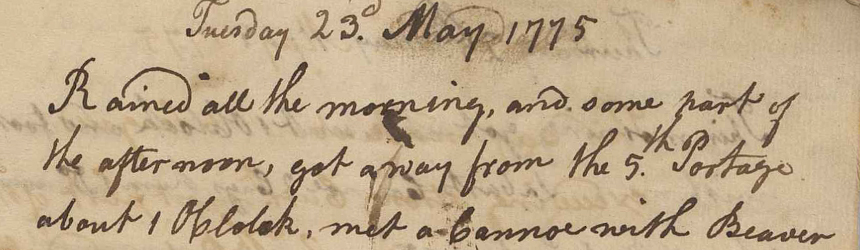 Tuesday 23.d May 1775
Rained all the morning, and some part of
the afternoon, got away from the 5.th Portage
about 1 OClock, met a Cannoe with Beaver